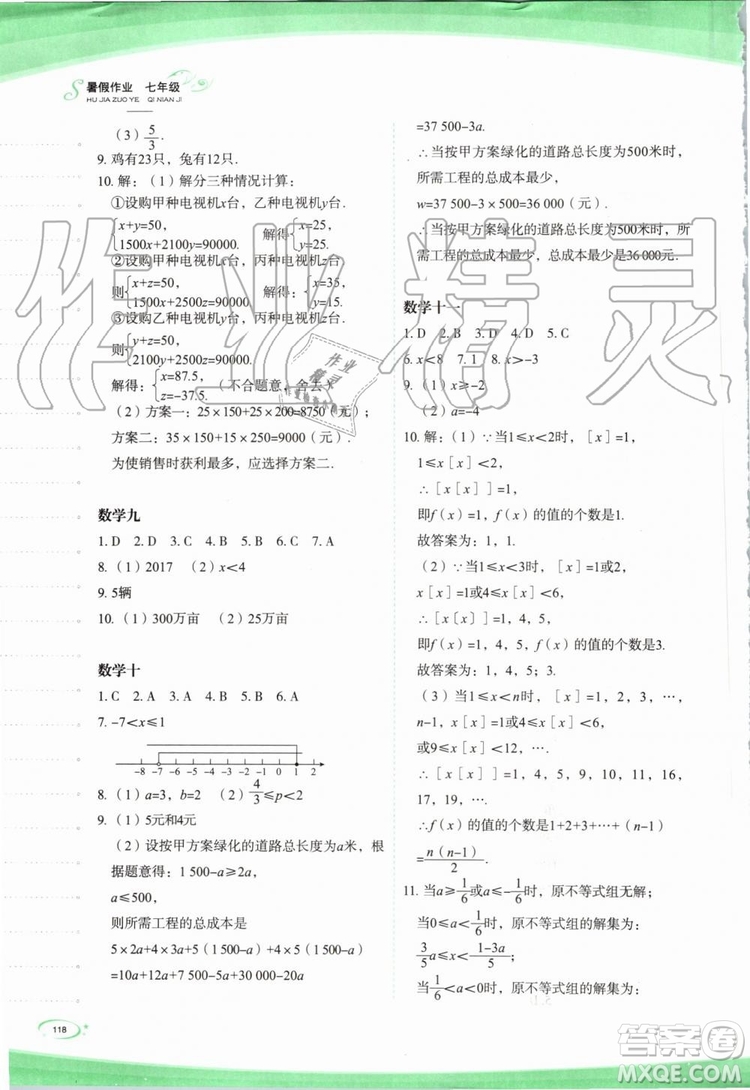 暑假作业 七年级
HU JIA ZUO YE QI NIAN JI
（3）5/3.
9. 鸡有23只，兔有12只.
10. 解：（1）解分三种情况计算：
①设购甲种电视机x台，乙种电视机y台.
{x+y=50,
1500x+2100y=90000. 解得{x=25,
y=25.
②设购甲种电视机x台，丙种电视机z台.
则{x+z=50,
1500x+2500z=90000. 解得：{x=35,
z=15.
③设购乙种电视机y台，丙种电视机z台.
则{y+z=50,
2100y+2500z=90000.
解得：{x=87.5,
z=-37.5. （不合题意，舍去）
（2）方案一：25×150+25×200=8750（元）；
方案二：35×150+15×250=9000（元）.
为使销售时获利最多，应选择方案二.
数学九
1. D 2. D 3. C 4. B 5. C 6. C 7. A
8.（1）2017 （2）x<4
9. 5辆
10. （1）300万亩 （2）25万亩
数学十
1. C 2. A 3. A 4. D 5. B 6. A
7. -7<x≤1
-8 -7 -6 -5 -4 -3 -2 -1 0 1 2
8. （1）a=3，b=2 （2）4/3≤p<2
9. （1）5元和4元
（2）设按甲方案绿化的道路总长度为a米，根
据题意得：1 500-a≥2a，
a≤500，
则所需工程的总成本是
5×2a+4×3a+5（1 500-a）+4×5（1 500-a）
=10a+12a+7 500-5a+30 000-20a
118
=37 500-3a.
∴当按甲方案绿化的道路总长度为500米时，
所需工程的总成本最少，
w=37 500-3×500=36 000（元）.
∴当按甲方案绿化的道路总长度为500米时，
所需工程的总成本最少，总成本最少是36 000元.
数学十一
1. D 2. B 3. D 4. D 5. C
6. x<8 7. 1 8. x>-3
9. （1）x≥-2
（2）a=-4
10. 解：（1）∵当1≤x<2时，［x］=1，
1≤x［x］<2，
∴［x［x］］=1，
即f（x）=1，f（x）的值的个数是1.
故答案为：1，1.
（2）∵当1≤x<3时，［x］=1，
x［x］=1或4≤x［x］<6，
∴［x［x］］=1，4，5，
即f（x）=1，4，5，f（x）的值的个数是3.
故答案为：1，4，5；3.
（3）当1≤x<n时，［x］=1，2，3，…，
n-1，x［x］=1或4≤x［x］<6，
或9≤x［x］<12，…
∴［x［x］］=1，4，5，9，10，11，16，
17，19，….
∴f（x）的值的个数是1+2+3+…+（n-1）
=n（n-1）/2.
11. 当a≥1/6或a≤-1/6时，原不等式组无解；
当0≤a<1/6时，原不等式组的解集为：
3/5a≤x<（1-3a）/5；
当1/6<a<0时，原不等式组的解集为：
作业精灵
作业
精灵
答案卷
MXQE.COM